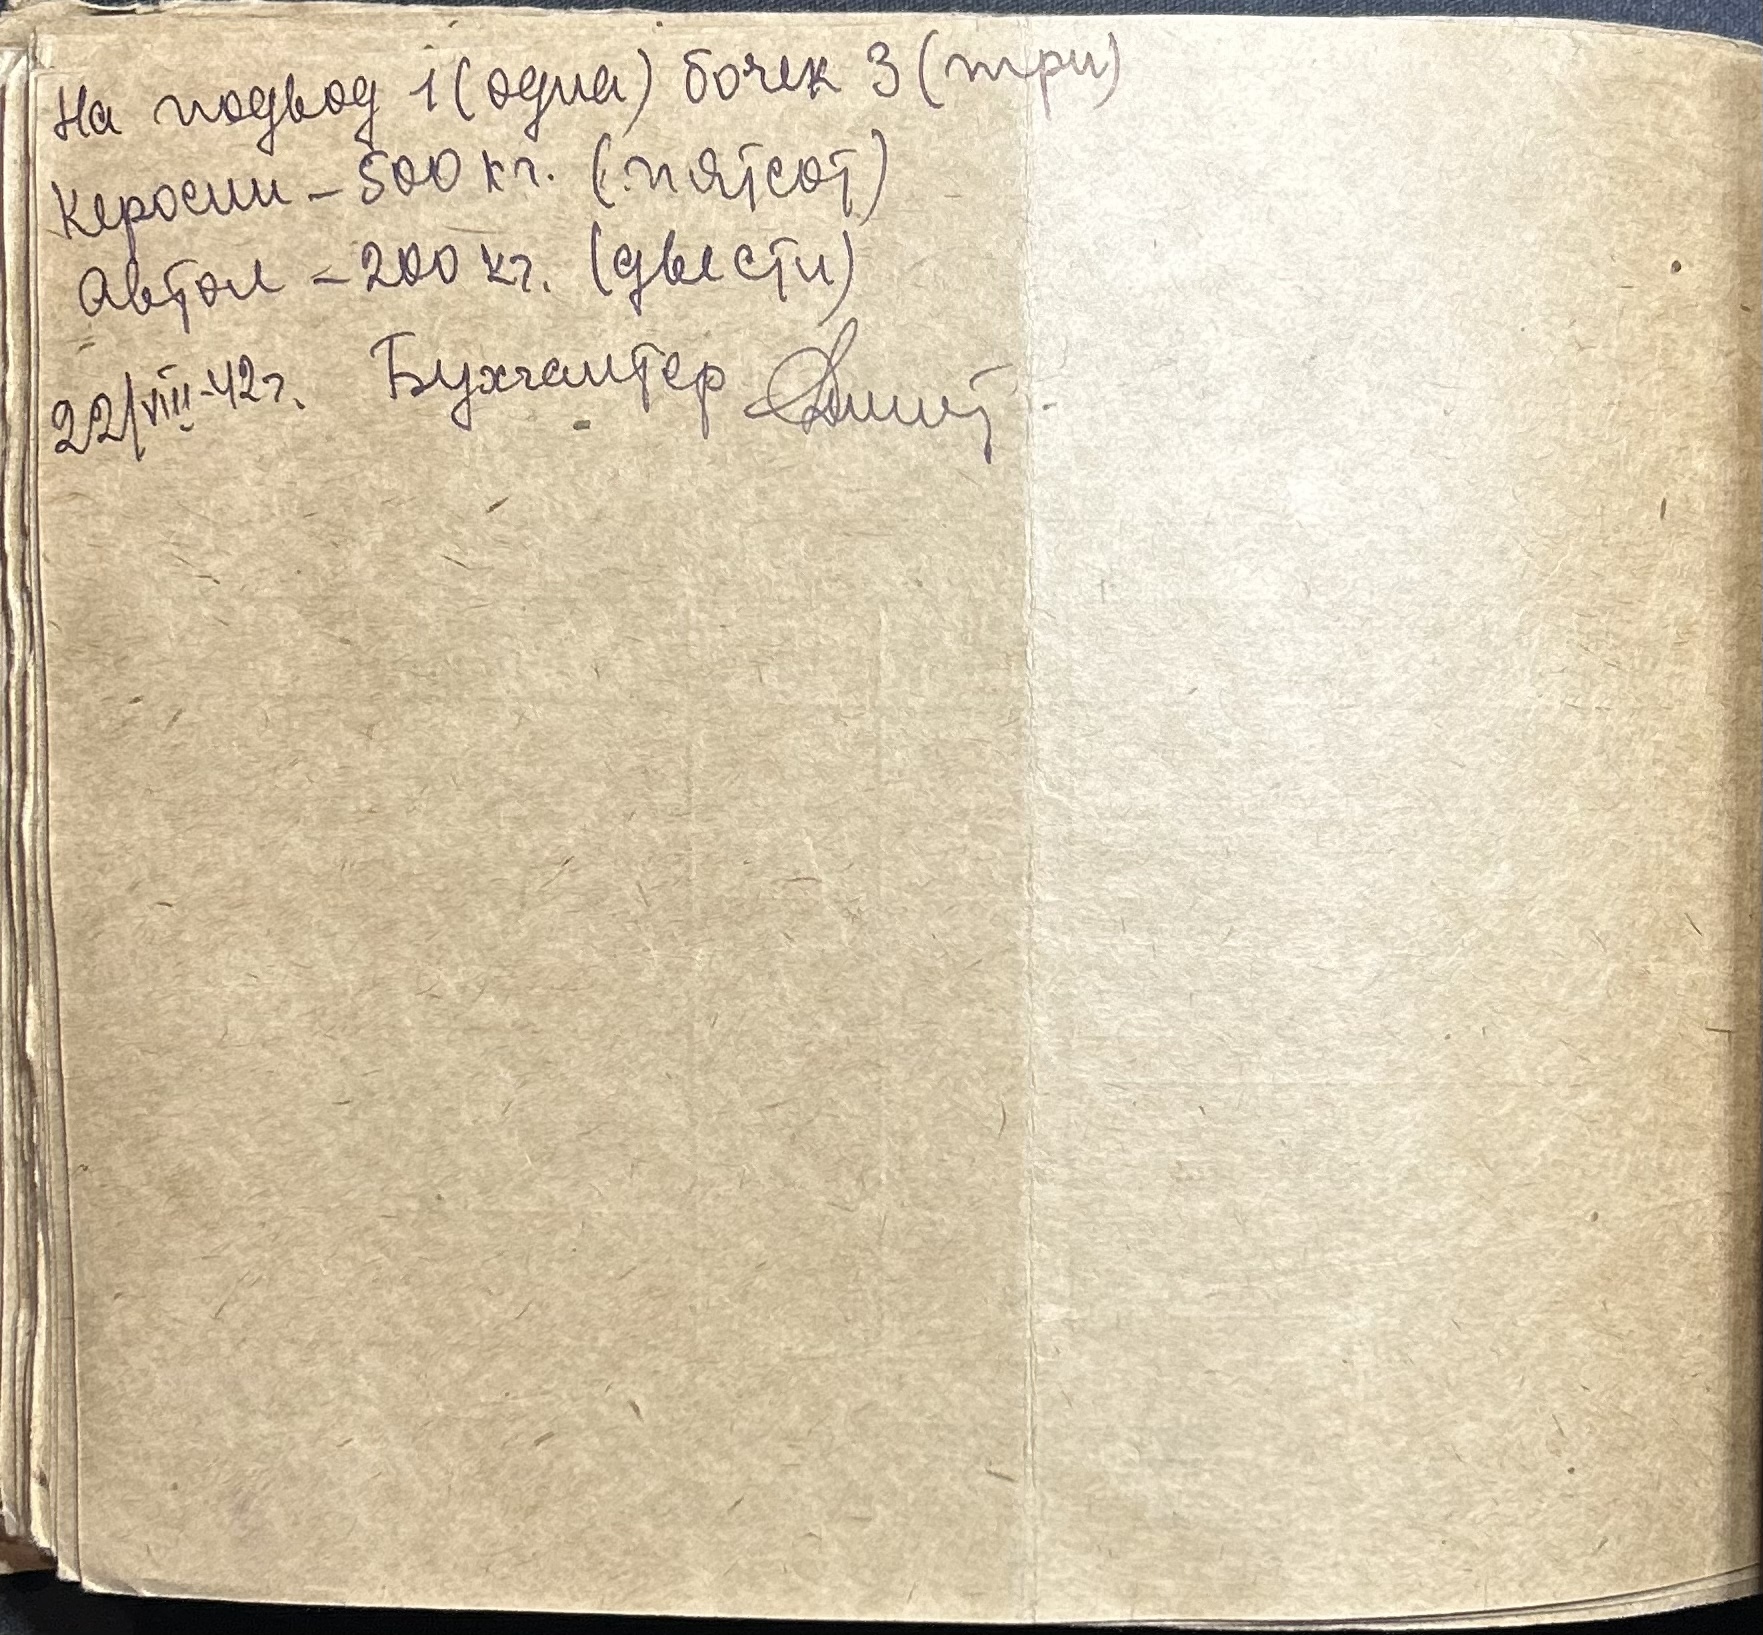 На подвод 1 (одна) бочек 3 (три)
Керосин - 500 кг. (пятсот)
Автол - 200 кг. (двести)
22/VIII-42 г. Бухгалтер